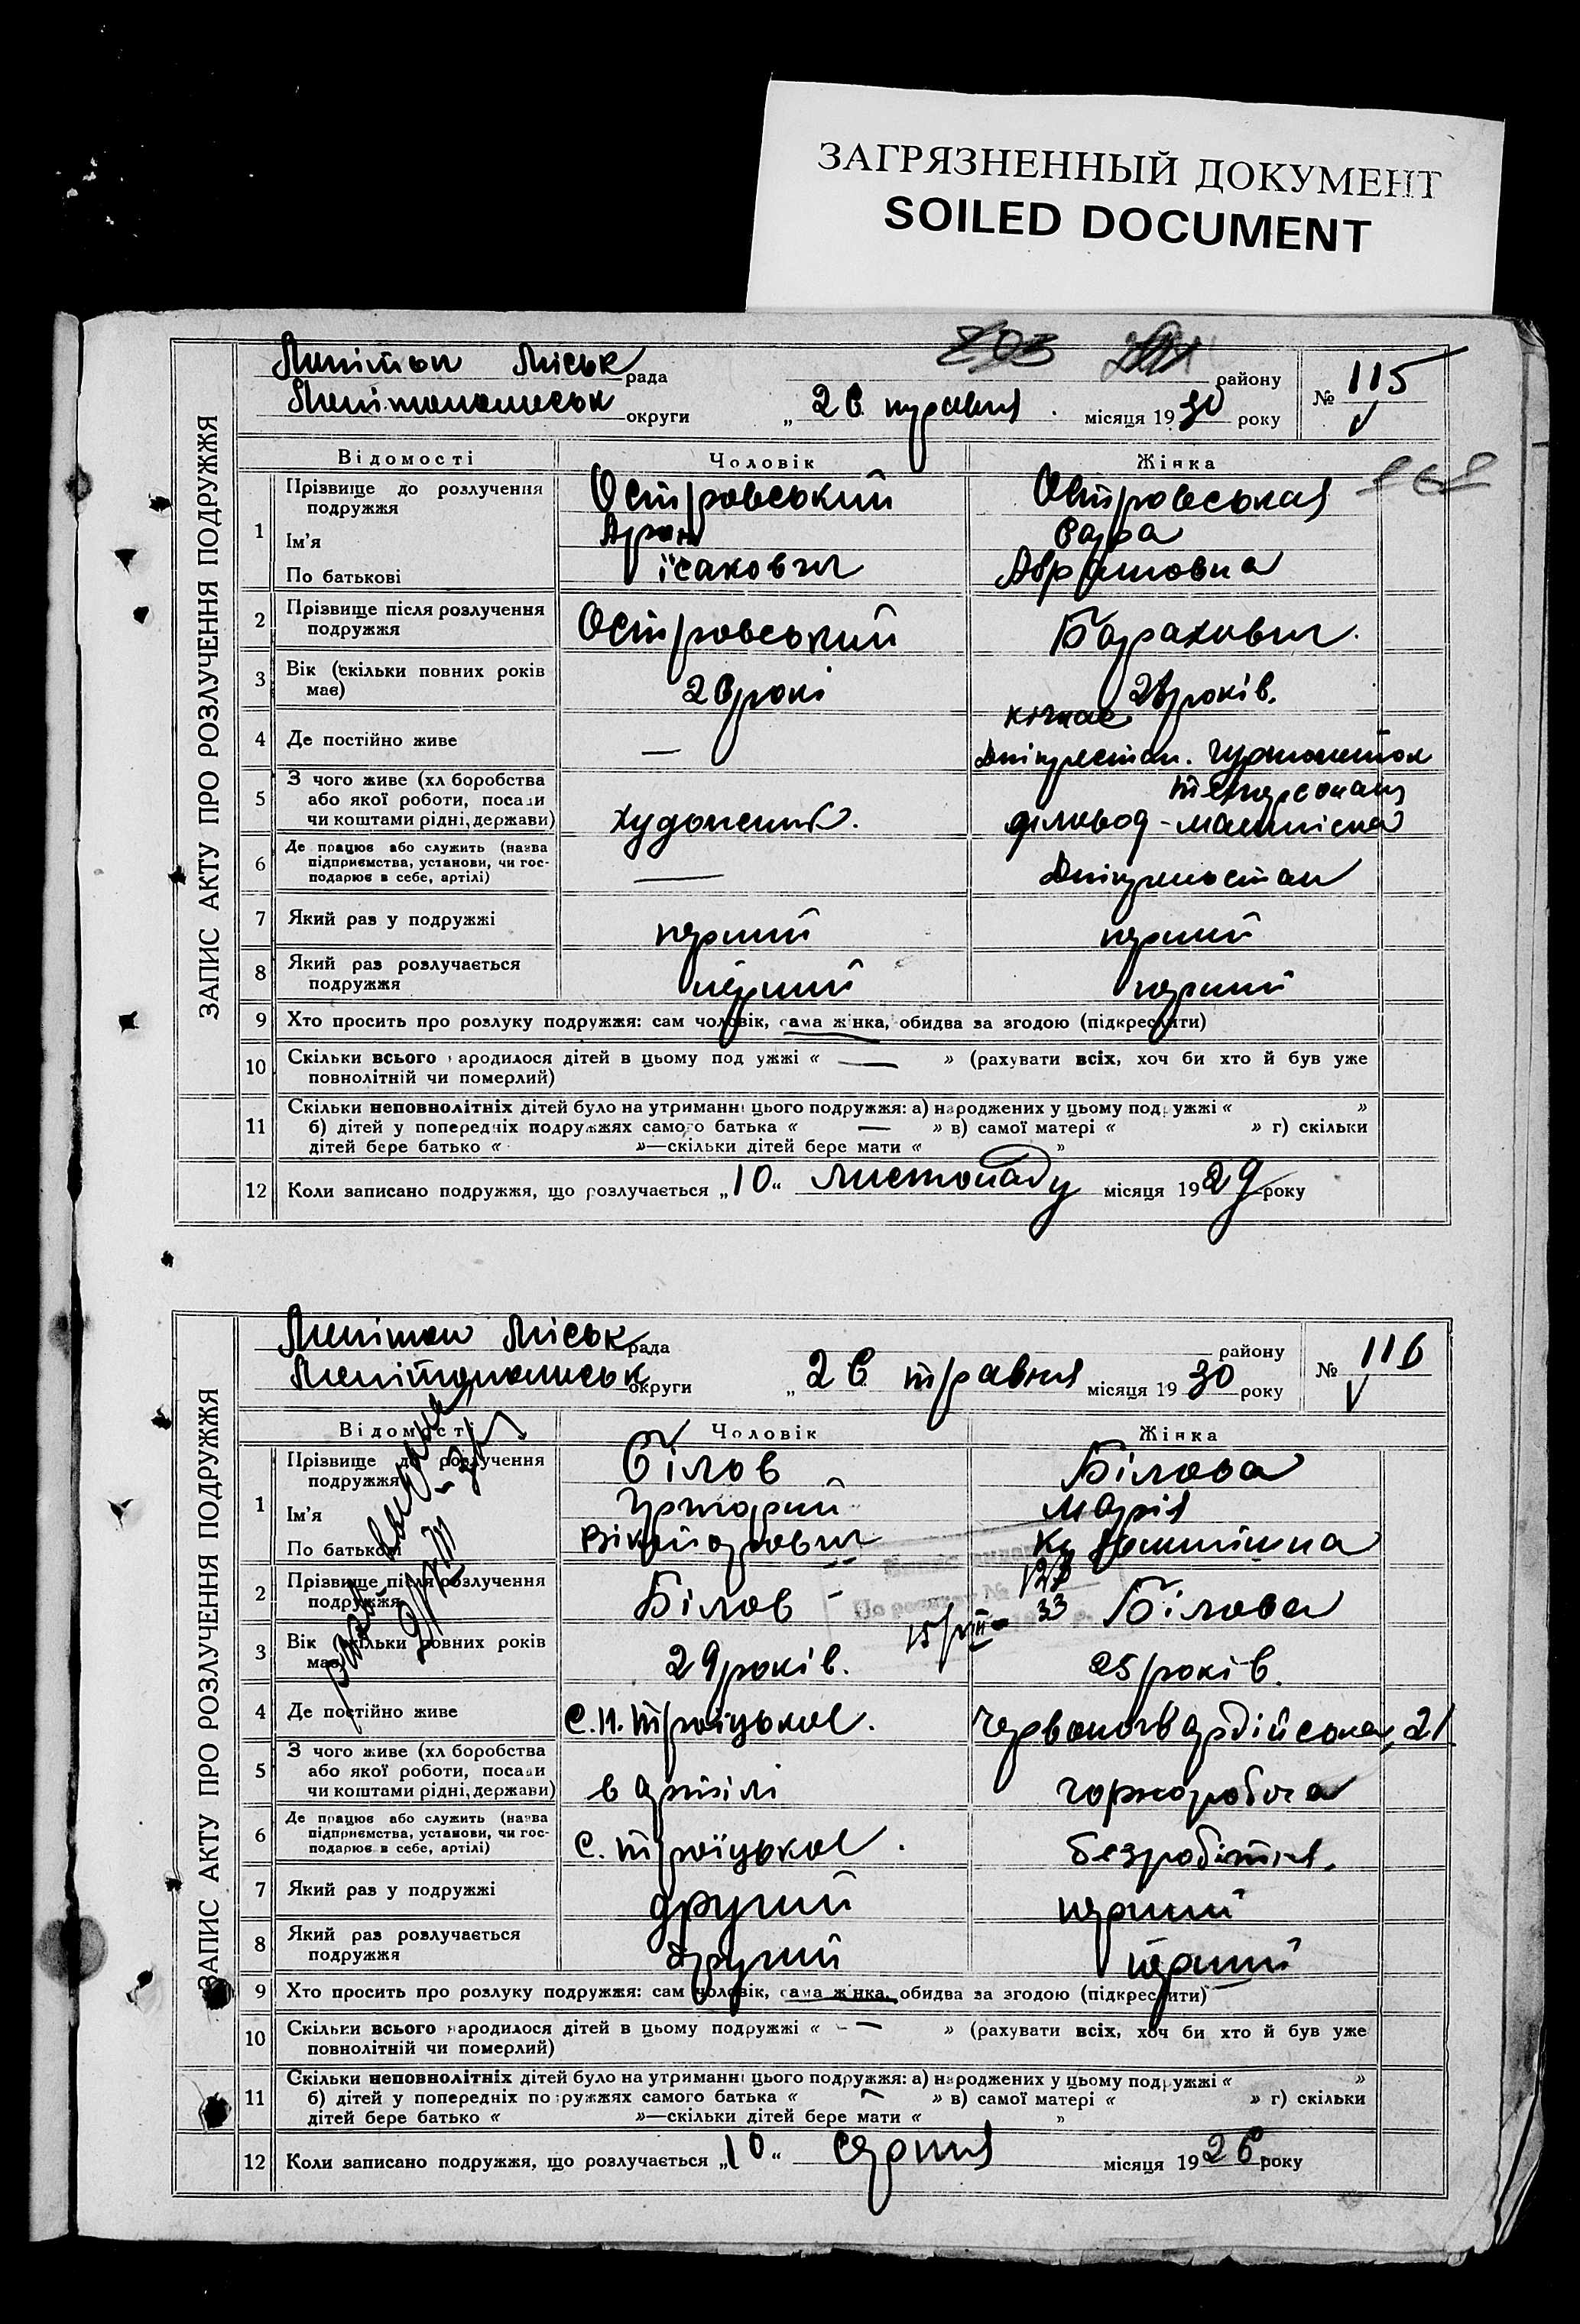 ЗАГРЯЗНЕННЫЙ ДОКУМЕНТ
SOILED DOCUMENT
ЗАПИС АКТУ ПРО РОЗЛУЧЕННЯ ПОДРУЖЖЯ
Мелітоп Міськ рада району
№ 115
округи „ 26 місяця 1930 року
Відомості Чоловік Жінка
1 Прізвище до розлучення подружжя Островський Островська
Ім'я Арон Сара
По батькові Ісакович Абрамовна
2 Прізвище після розлучення подружжя Островський Барахович.
3 Вік (скільки повних років має) 26 років.
4 Де постійно живе —
5 З чого живе (хл боробства
або якої роботи, посади
чи коштами рідні, держави) художник. діловод-машиністка
6 Де працює або служить (назва
підприємства, установи, чи гос-
подарює в себе, артілі) —
7 Який раз у подружжі перший перший
8 Який раз розлучається подружжя перший перший
9 Хто просить про розлуку подружжя: сам чоловік, сама жінка, обидва за згодою (підкреслити)
10 Скільки всього народилося дітей в цьому подружжі « — » (рахувати всіх, хоч би хто й був уже
повнолітній чи померлий)
11 Скільки неповнолітніх дітей було на утриманні цього подружжя: а) народжених у цьому подружжі « »
б) дітей у попередніх подружжях самого батька « — » в) самої матері « » г) скільки
дітей бере батько « »—скільки дітей бере мати « »
12 Коли записано подружжя, що розлучається „10“ листопаду місяця 1929 року
ЗАПИС АКТУ ПРО РОЗЛУЧЕННЯ ПОДРУЖЖЯ
Мелітоп Міськ рада району
№ 116
округи „ 26 травня місяця 1930 року
Відомості Чоловік Жінка
1 Прізвище до розлучення подружжя Білов Білова
Ім'я Григорий Марія
По батькові
2 Прізвище після розлучення подружжя Білов Білова
3 Вік (скільки повних років має) 29 років. 25 років.
4 Де постійно живе с. Н. Троїцькое. Червоногвардійська, 21
5 З чого живе (хл боробства
або якої роботи, посади
чи коштами рідні, держави) в артілі чорноробоча
6 Де працює або служить (назва
підприємства, установи, чи гос-
подарює в себе, артілі) с. Троїцькое. безробітня.
7 Який раз у подружжі другий перший
8 Який раз розлучається подружжя другий перший
9 Хто просить про розлуку подружжя: сам чоловік, сама жінка, обидва за згодою (підкреслити)
10 Скільки всього народилося дітей в цьому подружжі « — » (рахувати всіх, хоч би хто й був уже
повнолітній чи померлий)
11 Скільки неповнолітніх дітей було на утриманні цього подружжя: а) народжених у цьому подружжі « »
б) дітей у попередніх подружжях самого батька « — » в) самої матері « » г) скільки
дітей бере батько « »—скільки дітей бере мати « »
12 Коли записано подружжя, що розлучається „10“ серпня місяця 1926 року